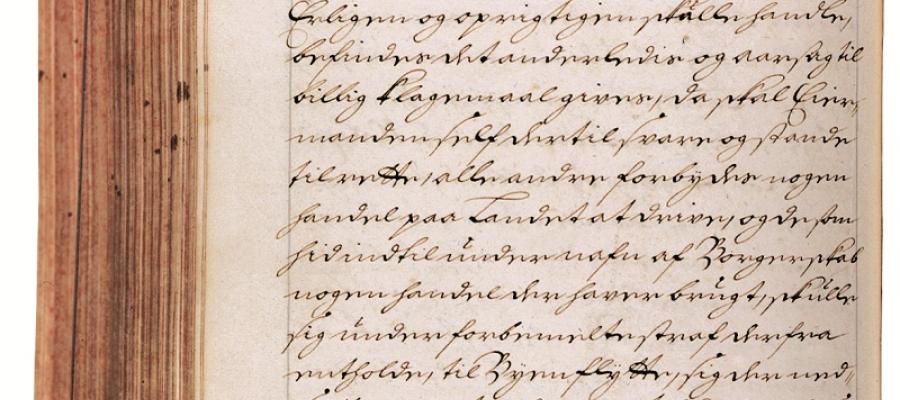 Erligen og oprigtigen skulle handle,
befindes det anderledis og aarsag til
billig klagemaal gives, da skal Eier-
manden self dertil svare og stande
til rette, alle andre forbydes nogen
handel paa Landet at drive, og de som
hid indtil under nafn af Borgerskab
nogen handel der haver brugt, skulle
sig under forbemelte straf derfra
entholde, til Byen flytte, sig der ned-